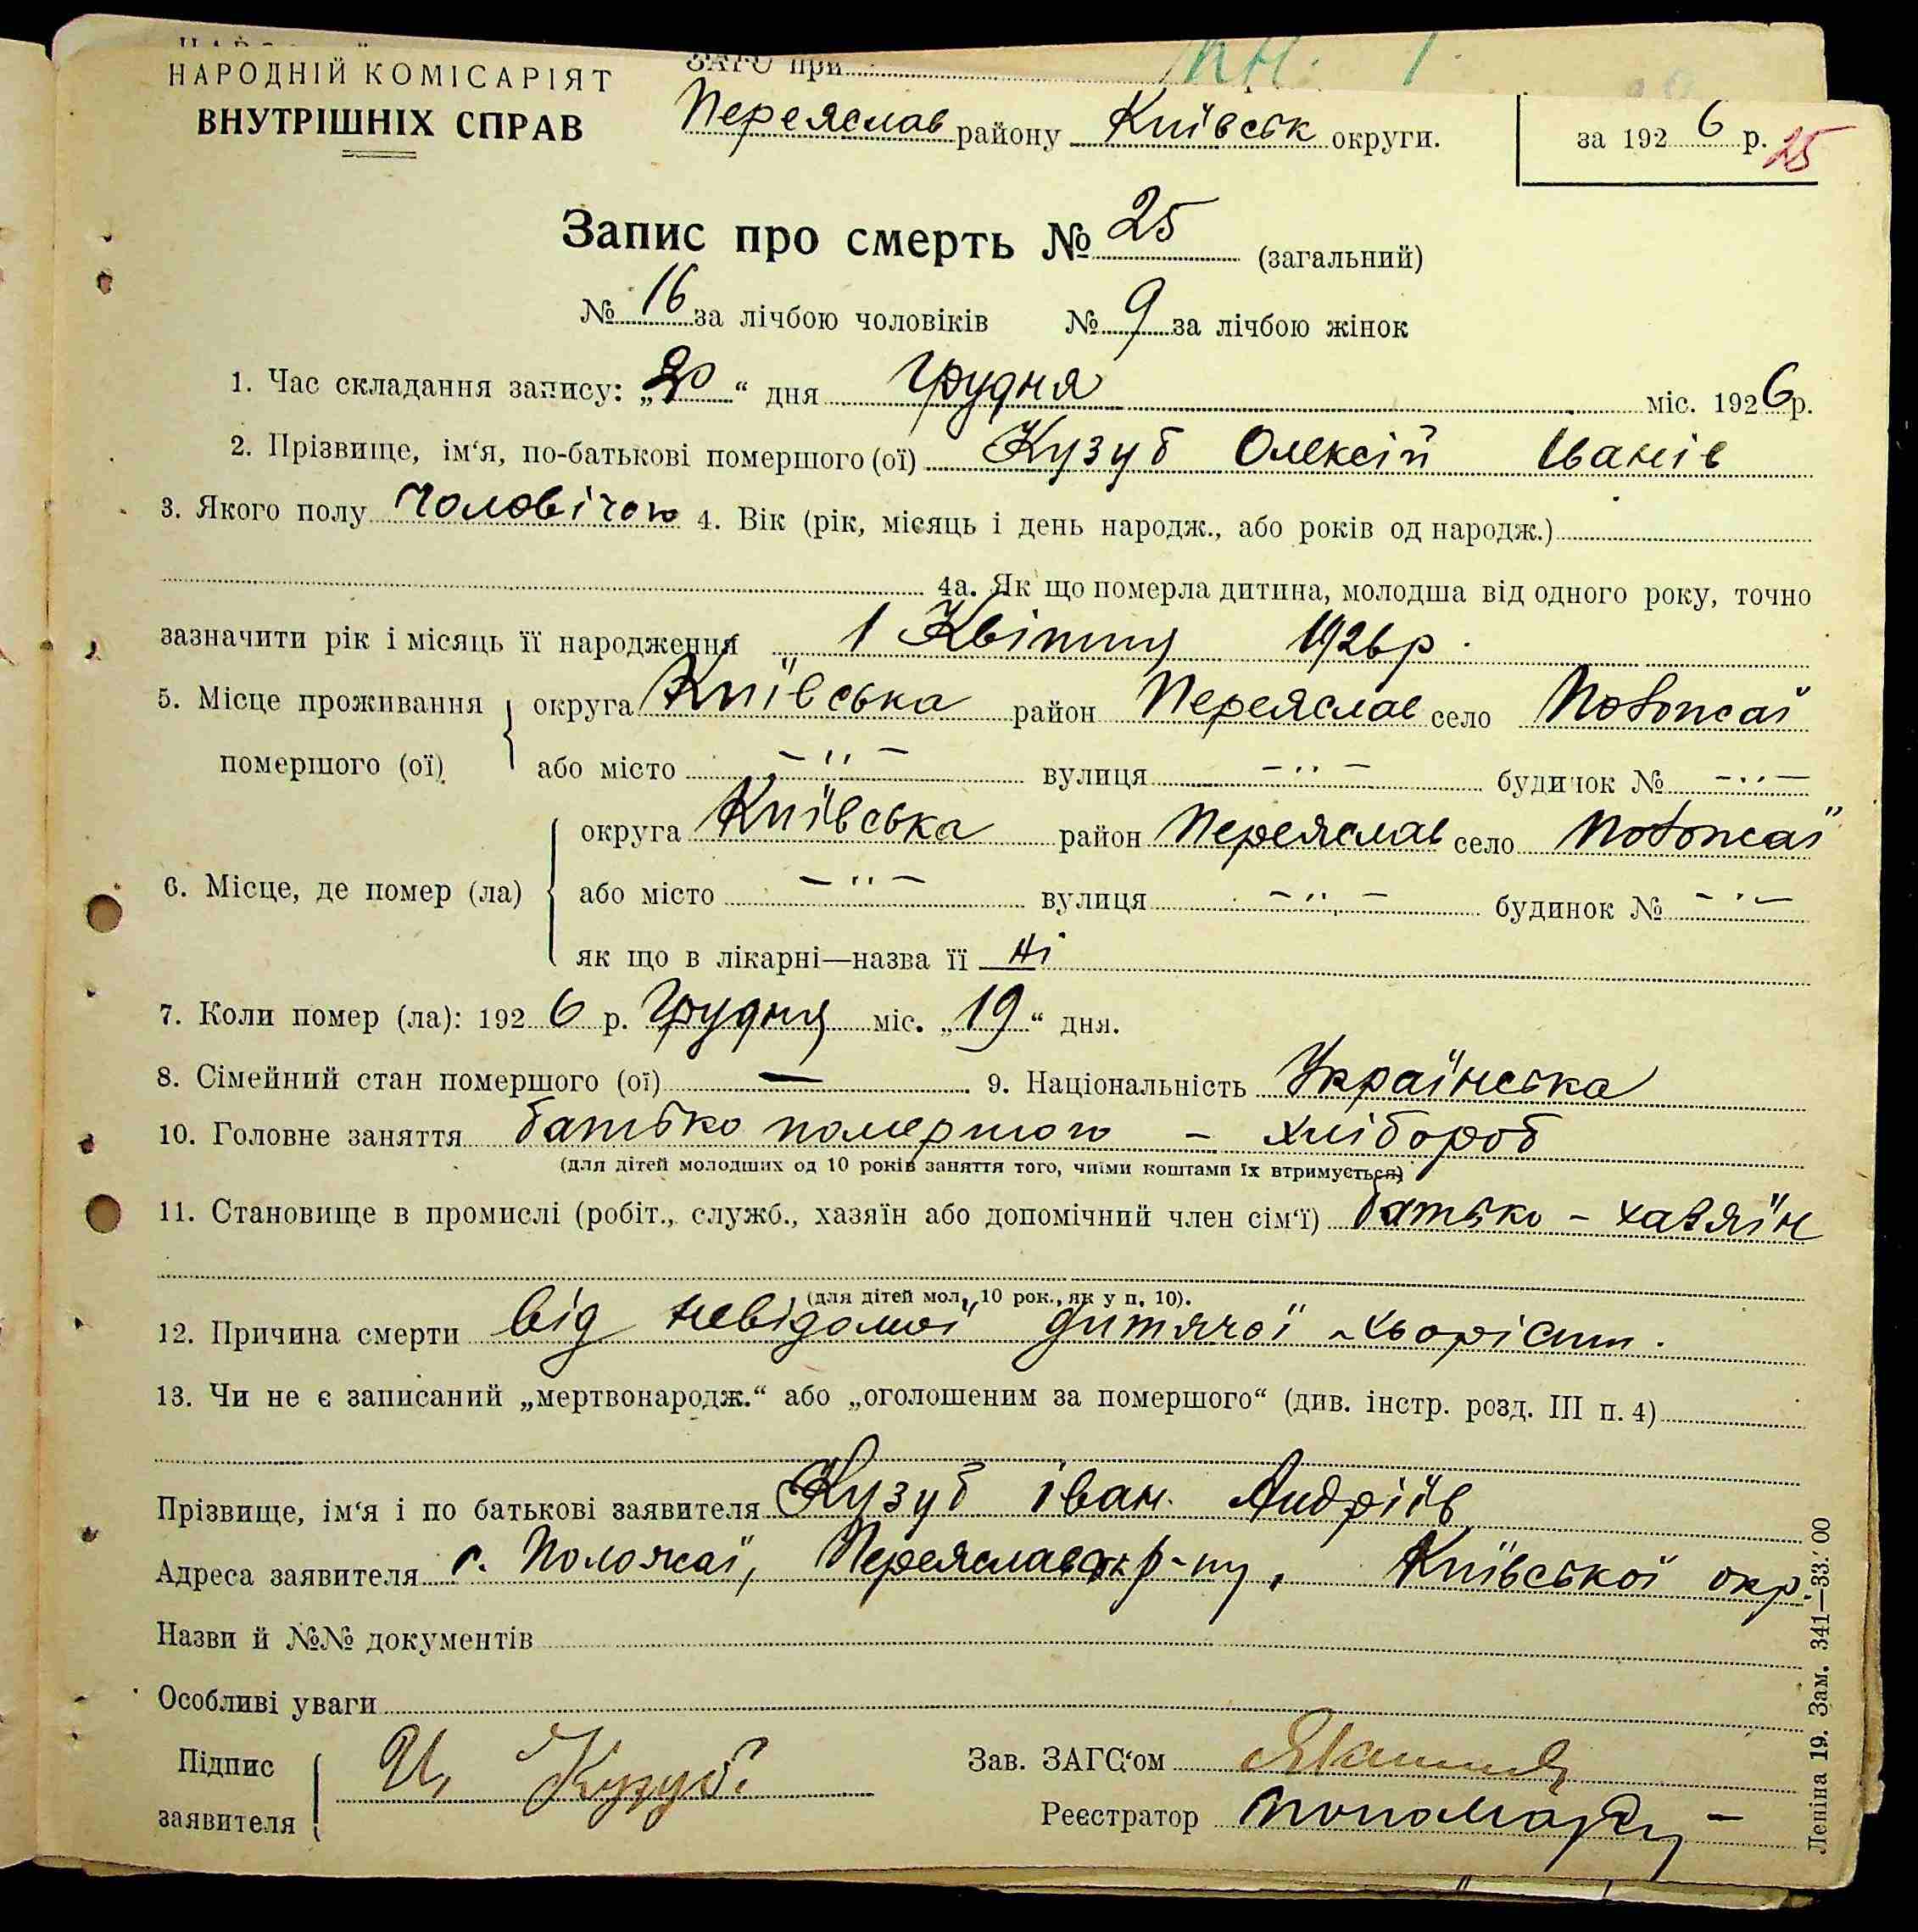 НАРОДНІЙ КОМІСАРІЯТ
ВНУТРІШНІХ СПРАВ
ЗАГС при
Переяслав району Київськ округи.
за 1926 р. 25
Запис про смерть № 25 (загальний)
№ 16 за лічбою чоловіків № 9 за лічбою жінок
1. Час складання запису: „20“ дня Грудня міс. 1926 р.
2. Прізвище, ім‘я, по-батькові помершого (ої) Кузуб Олексій Іванів
3. Якого полу Чоловічого 4. Вік (рік, місяць і день народж., або років од народж.)
4а. Як що померла дитина, молодша від одного року, точно
зазначити рік і місяць її народження 1 Квітня 1926 р.
5. Місце проживання помершого (ої) округа Київська район Переяслав село Положаї
або місто —"— вулиця —"— будинок № —"—
6. Місце, де помер (ла) округа Київська район Переяслав село Положаї
або місто —"— вулиця —"— будинок № —"—
як що в лікарні—назва її ні
7. Коли помер (ла): 1926 р. Грудня міс. „19“ дня.
8. Сімейний стан помершого (ої) — 9. Національність Українська
10. Головне заняття батько помершого – хлібороб
(для дітей молодших од 10 років заняття того, чиїми коштами їх втримується)
11. Становище в промислі (робіт., служб., хазяїн або допомічний член сім‘ї) батько – хазяїн
(для дітей мол. 10 рок., як у п. 10).
12. Причина смерти від невідомої дитячої хворісти.
13. Чи не є записаний „мертвонародж.“ або „оголошеним за помершого“ (див. інстр. розд. III п. 4)
Прізвище, ім‘я і по батькові заявителя Кузуб Іван Андріїв
Адреса заявителя с. Положаї, Переяславськ р-ну, Київської окр.
Назви й №№ документів
Особливі уваги
Підпис заявителя И. Кузуб
Зав. ЗАГС‘ом
Реєстратор
Леніна 19. Зам. 341—33.00